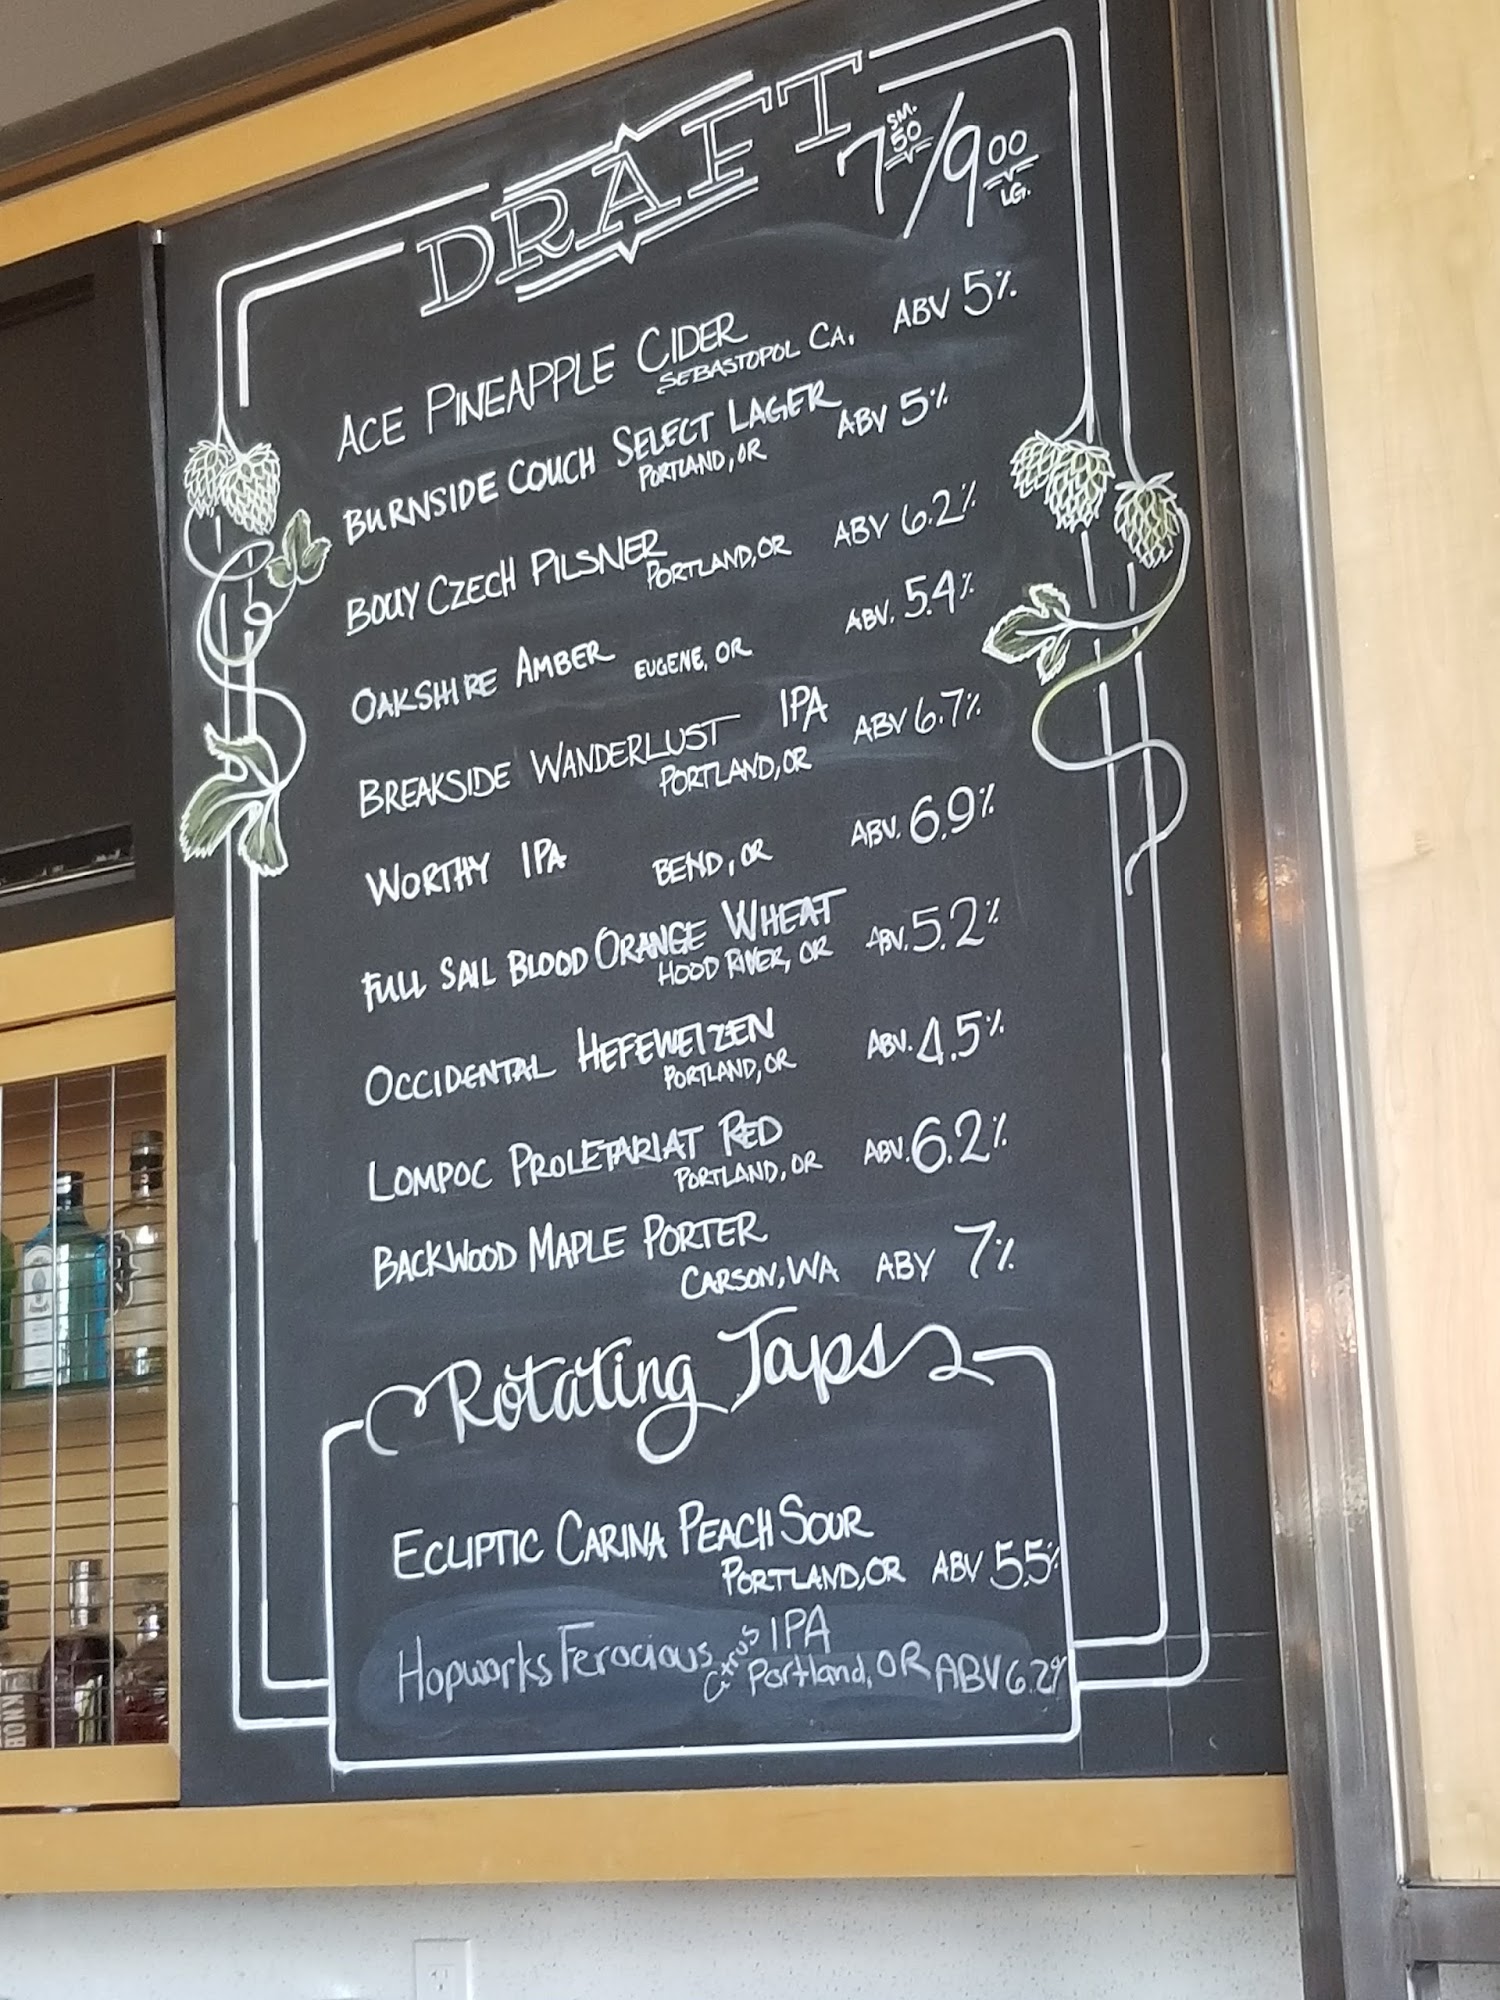 DRAFT 7 50 SM. / 9 00 LG.
ACE PINEAPPLE CIDER
SEBASTOPOL CA. ABV 5%
BURNSIDE COUCH SELECT LAGER
PORTLAND, OR ABV 5%
BOUY CZECH PILSNER
PORTLAND, OR ABV 6.2%
OAKSHIRE AMBER EUGENE, OR ABV. 5.4%
BREAKSIDE WANDERLUST IPA
PORTLAND, OR ABV 6.7%
WORTHY IPA BEND, OR ABV. 6.9%
FULL SAIL BLOOD ORANGE WHEAT
HOOD RIVER, OR ABV. 5.2%
OCCIDENTAL HEFEWEIZEN
PORTLAND, OR ABV. 4.5%
LOMPOC PROLETARIAT RED
PORTLAND, OR ABV. 6.2%
BACKWOOD MAPLE PORTER
CARSON, WA ABV 7%
Rotating Taps
ECLIPTIC CARINA PEACH SOUR
PORTLAND, OR ABV 5.5%
Hopworks Ferocious Citrus IPA
Portland, OR ABV 6.2%
KNOB